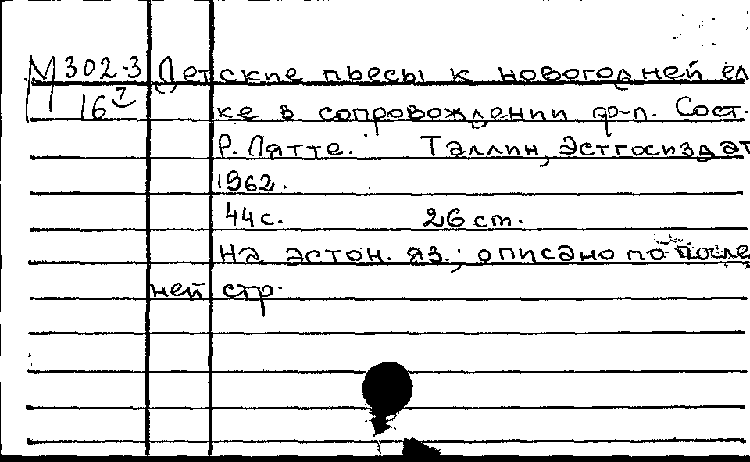 М 302-3 Детские пьесы к новогодней ел
16 7 ке в сопровождении ф-п. Сост.
Р. Пятте. Таллин, Эстгосиздат
1962.
44 с. 26 cm.
На эстон. яз.; описано по после
ней стр.